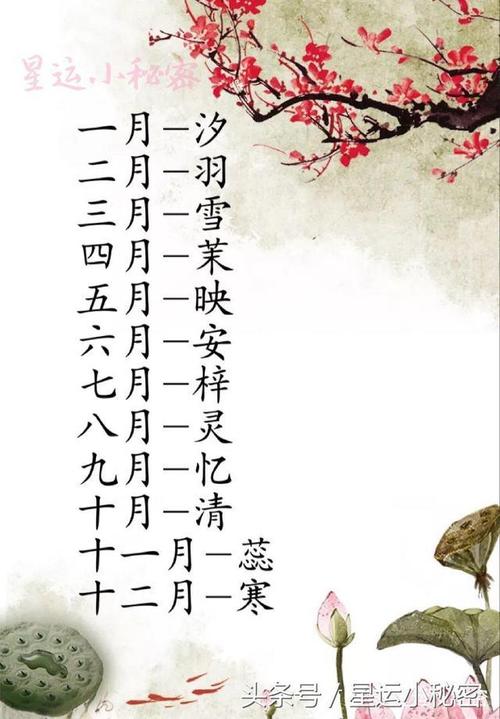 星运小秘密
一月－汐
二月－羽
三月－雪
四月－茉
五月－映
六月－安
七月－梓
八月－灵
九月－忆
十月－清
十一月－蕊
十二月－寒
头条号／星运小秘密